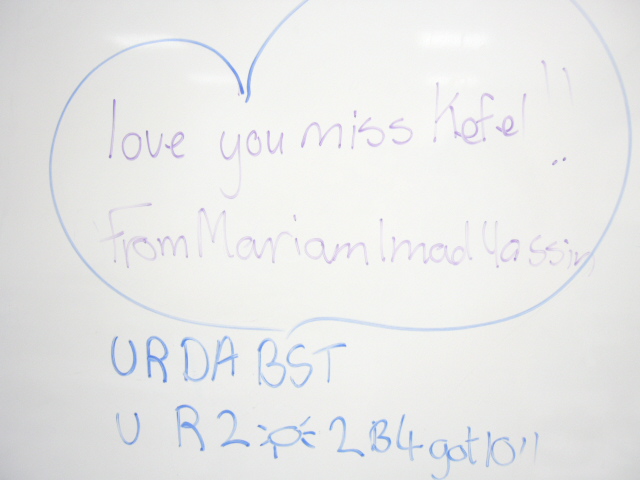 love you miss Kefel !!
From Mariam Imad Yassin
U R D A BST
U R 2 2 B4 got 10!!